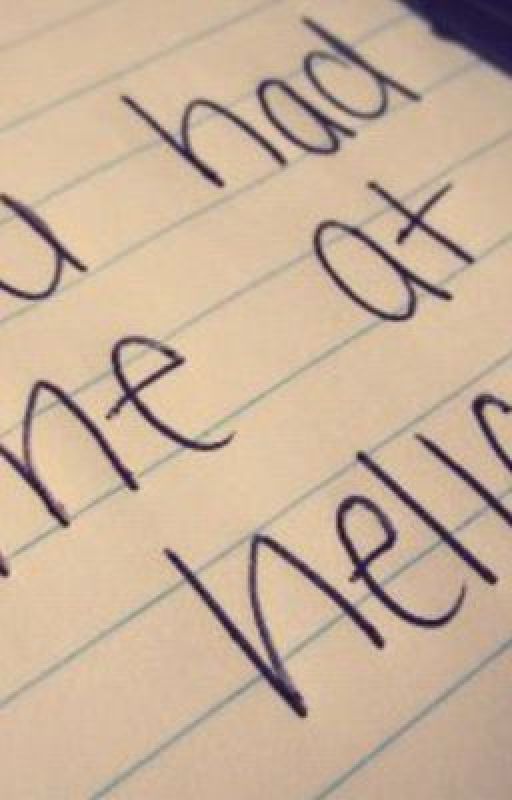 u had
me at
hello